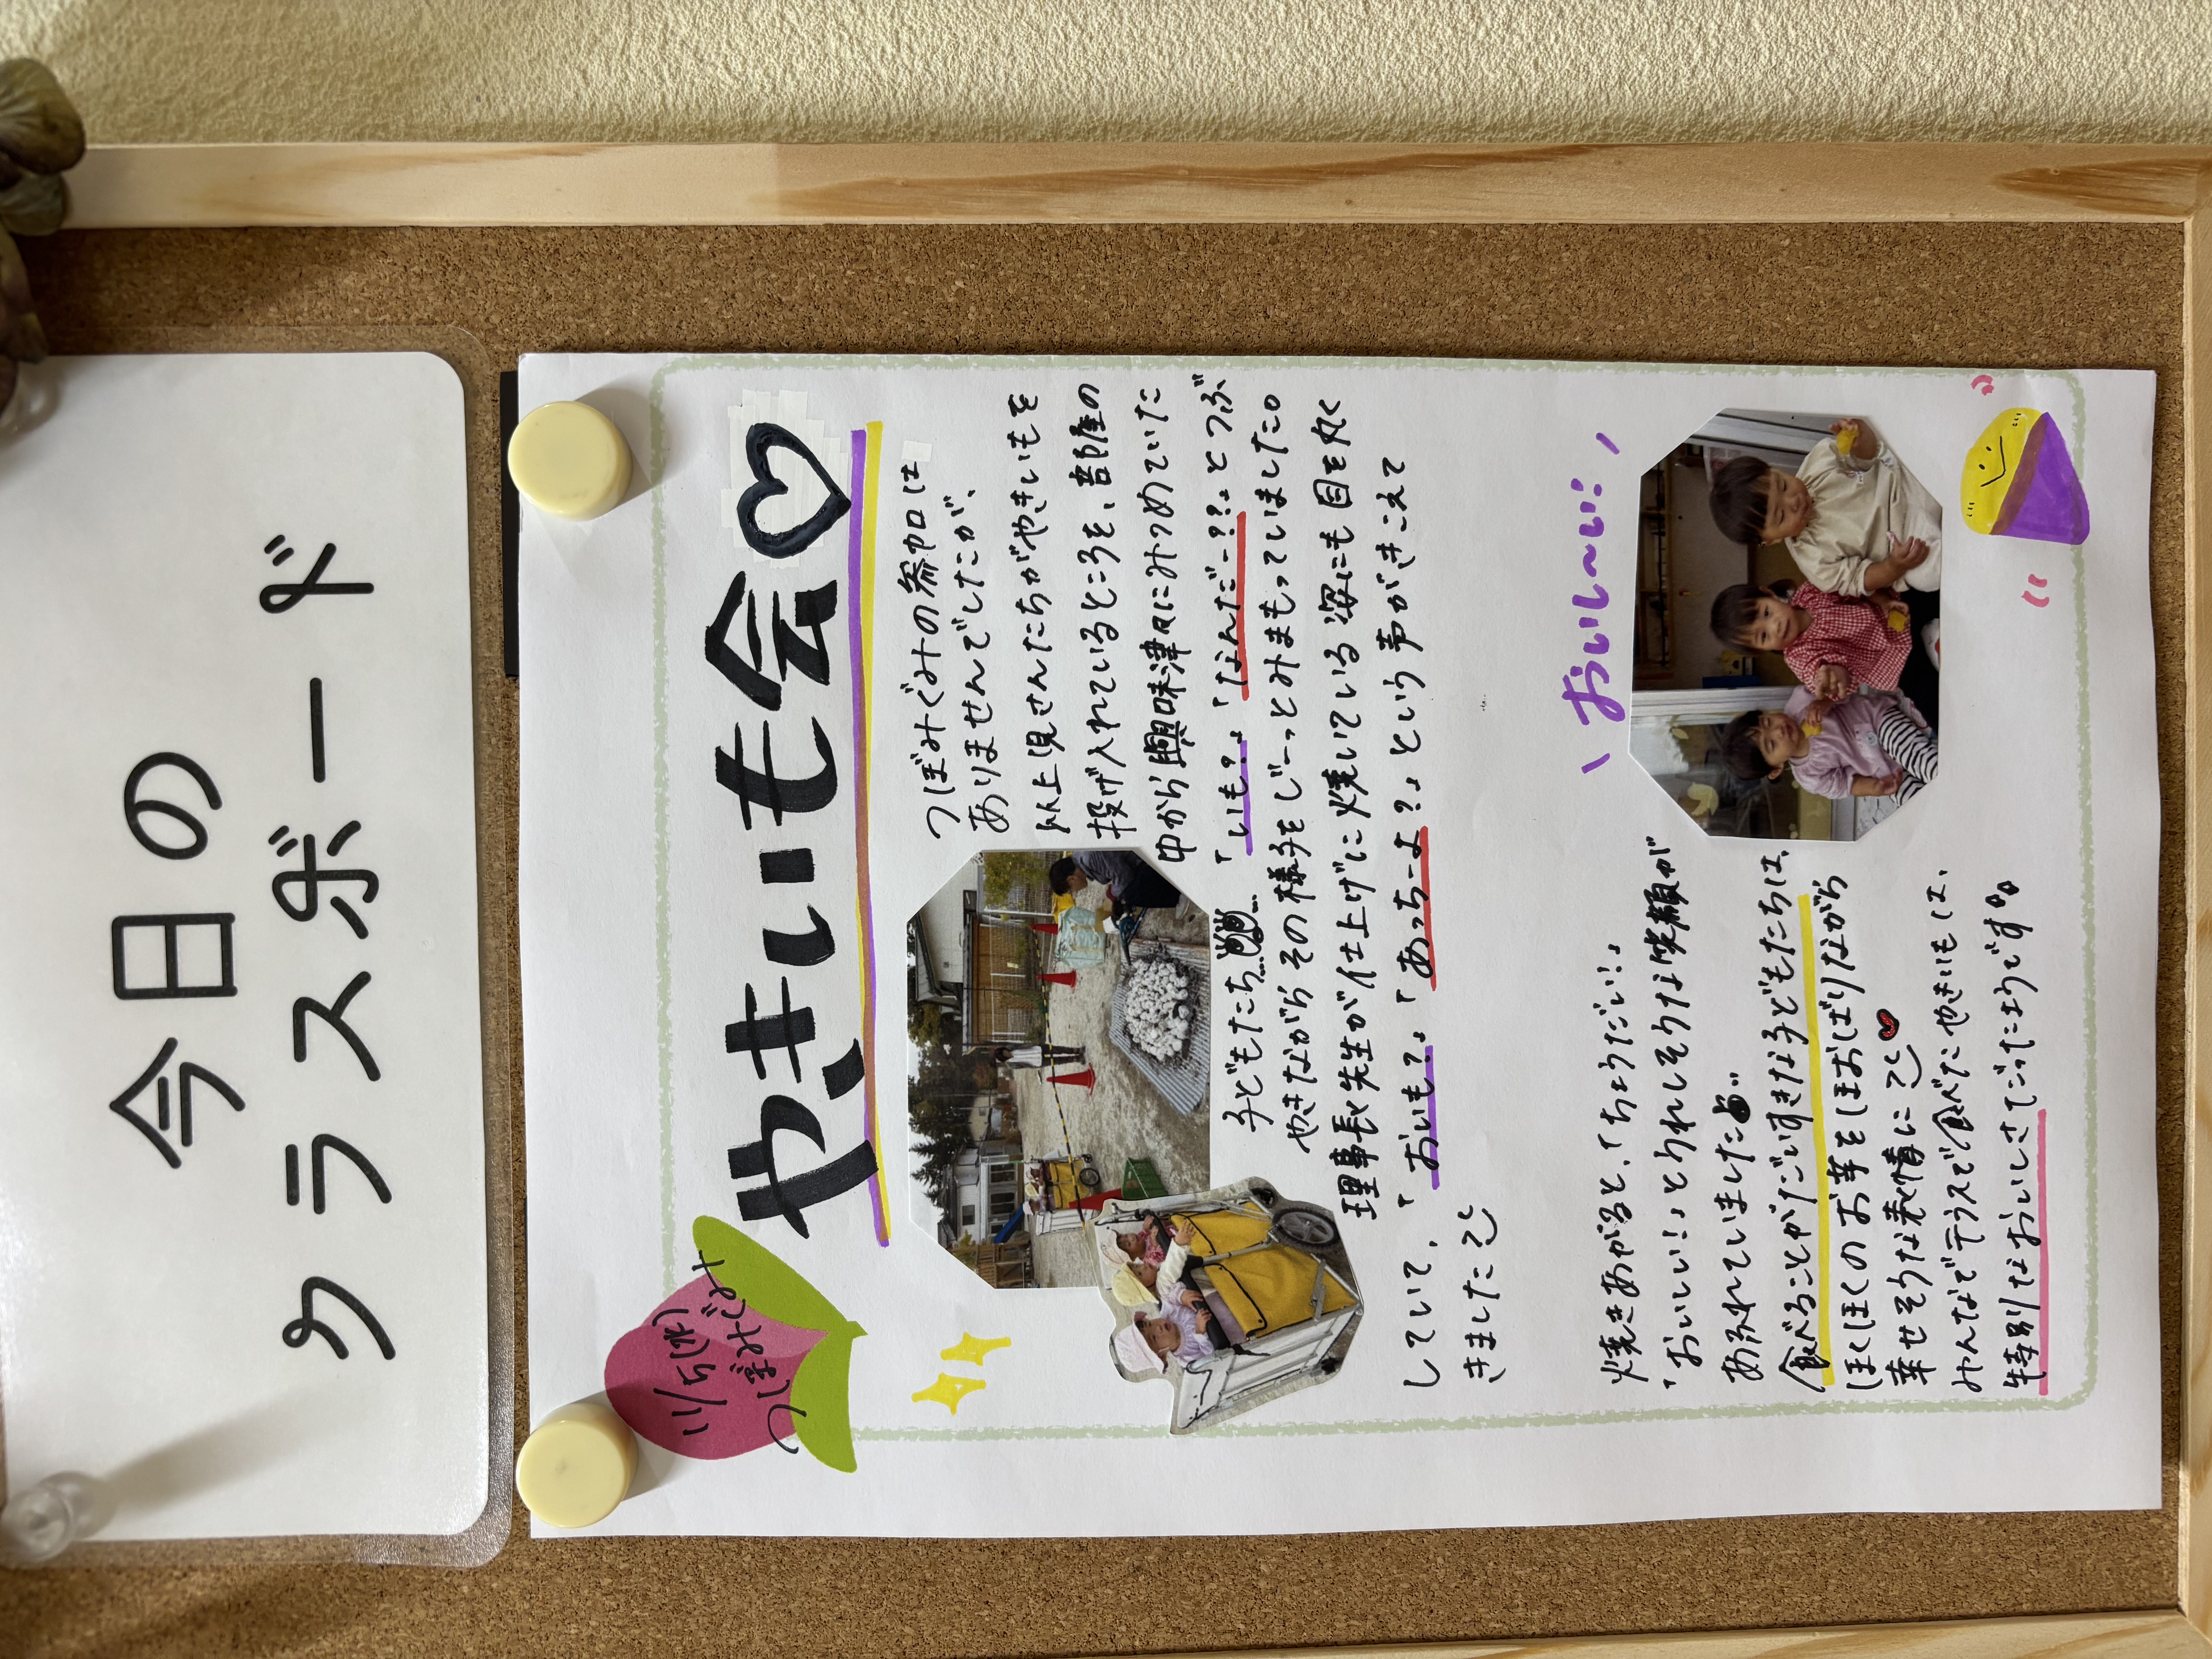 今日の
クラスボード
11/5(水)
つぼみぐみ
やきいも会♡
つぼみぐみの参加は
ありませんでしたが、
以上児さんたちがやきいもを
投げ入れているところを、部屋の
中から興味津々にみつめていた
子どもたち…。「いも?」「なんだー??」とつぶ
やきながらその様子をじーっとみまもっていました。
理事長先生が仕上げに焼いている姿にも目を丸く
していて、「おいも?」「あっちーよ?」という声がきこえて
きました
焼きあがると、「ちょうだい!」
「おいしい!」とうれしそうな笑顔が
あふれていました
食べることがだいすきな子どもたちは、
ほくほくのお芋をほおばりながら
幸せそうな表情に
みんなでテラスで食べたやきいもは、
特別なおいしさでだったようです。
\ おいし〜い! /